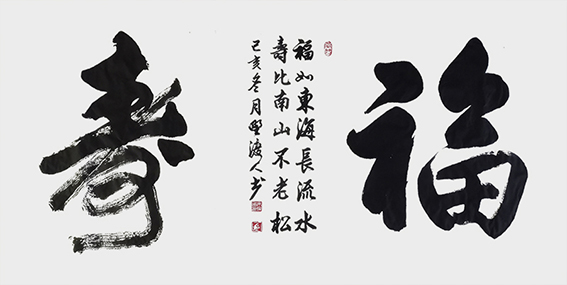 福
福如東海長流水
壽比南山不老松
己亥冬月野渡人书
壽